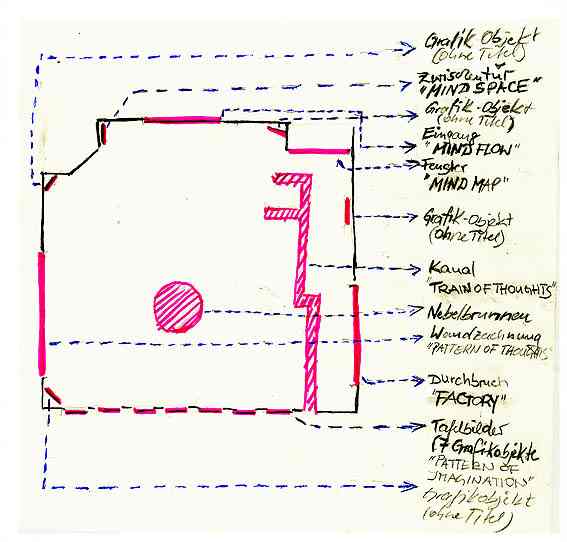 Grafik Objekt
(ohne Titel)
Zwischentür
"MIND SPACE"
Grafik-Objekt
(ohne Titel)
Eingang
"MIND FLOW"
Fenster
"MIND MAP"
Grafik-Objekt
(ohne Titel)
Kanal
"TRAIN OF THOUGHTS"
Nebelbrunnen
Wandzeichnung
"PATTERN OF THOUGHTS"
Durchbruch
"FACTORY"
Tafelbilder
(7 Grafikobjekte
"PATTERN OF
IMAGINATION"
Grafikobjekt
(ohne Titel)